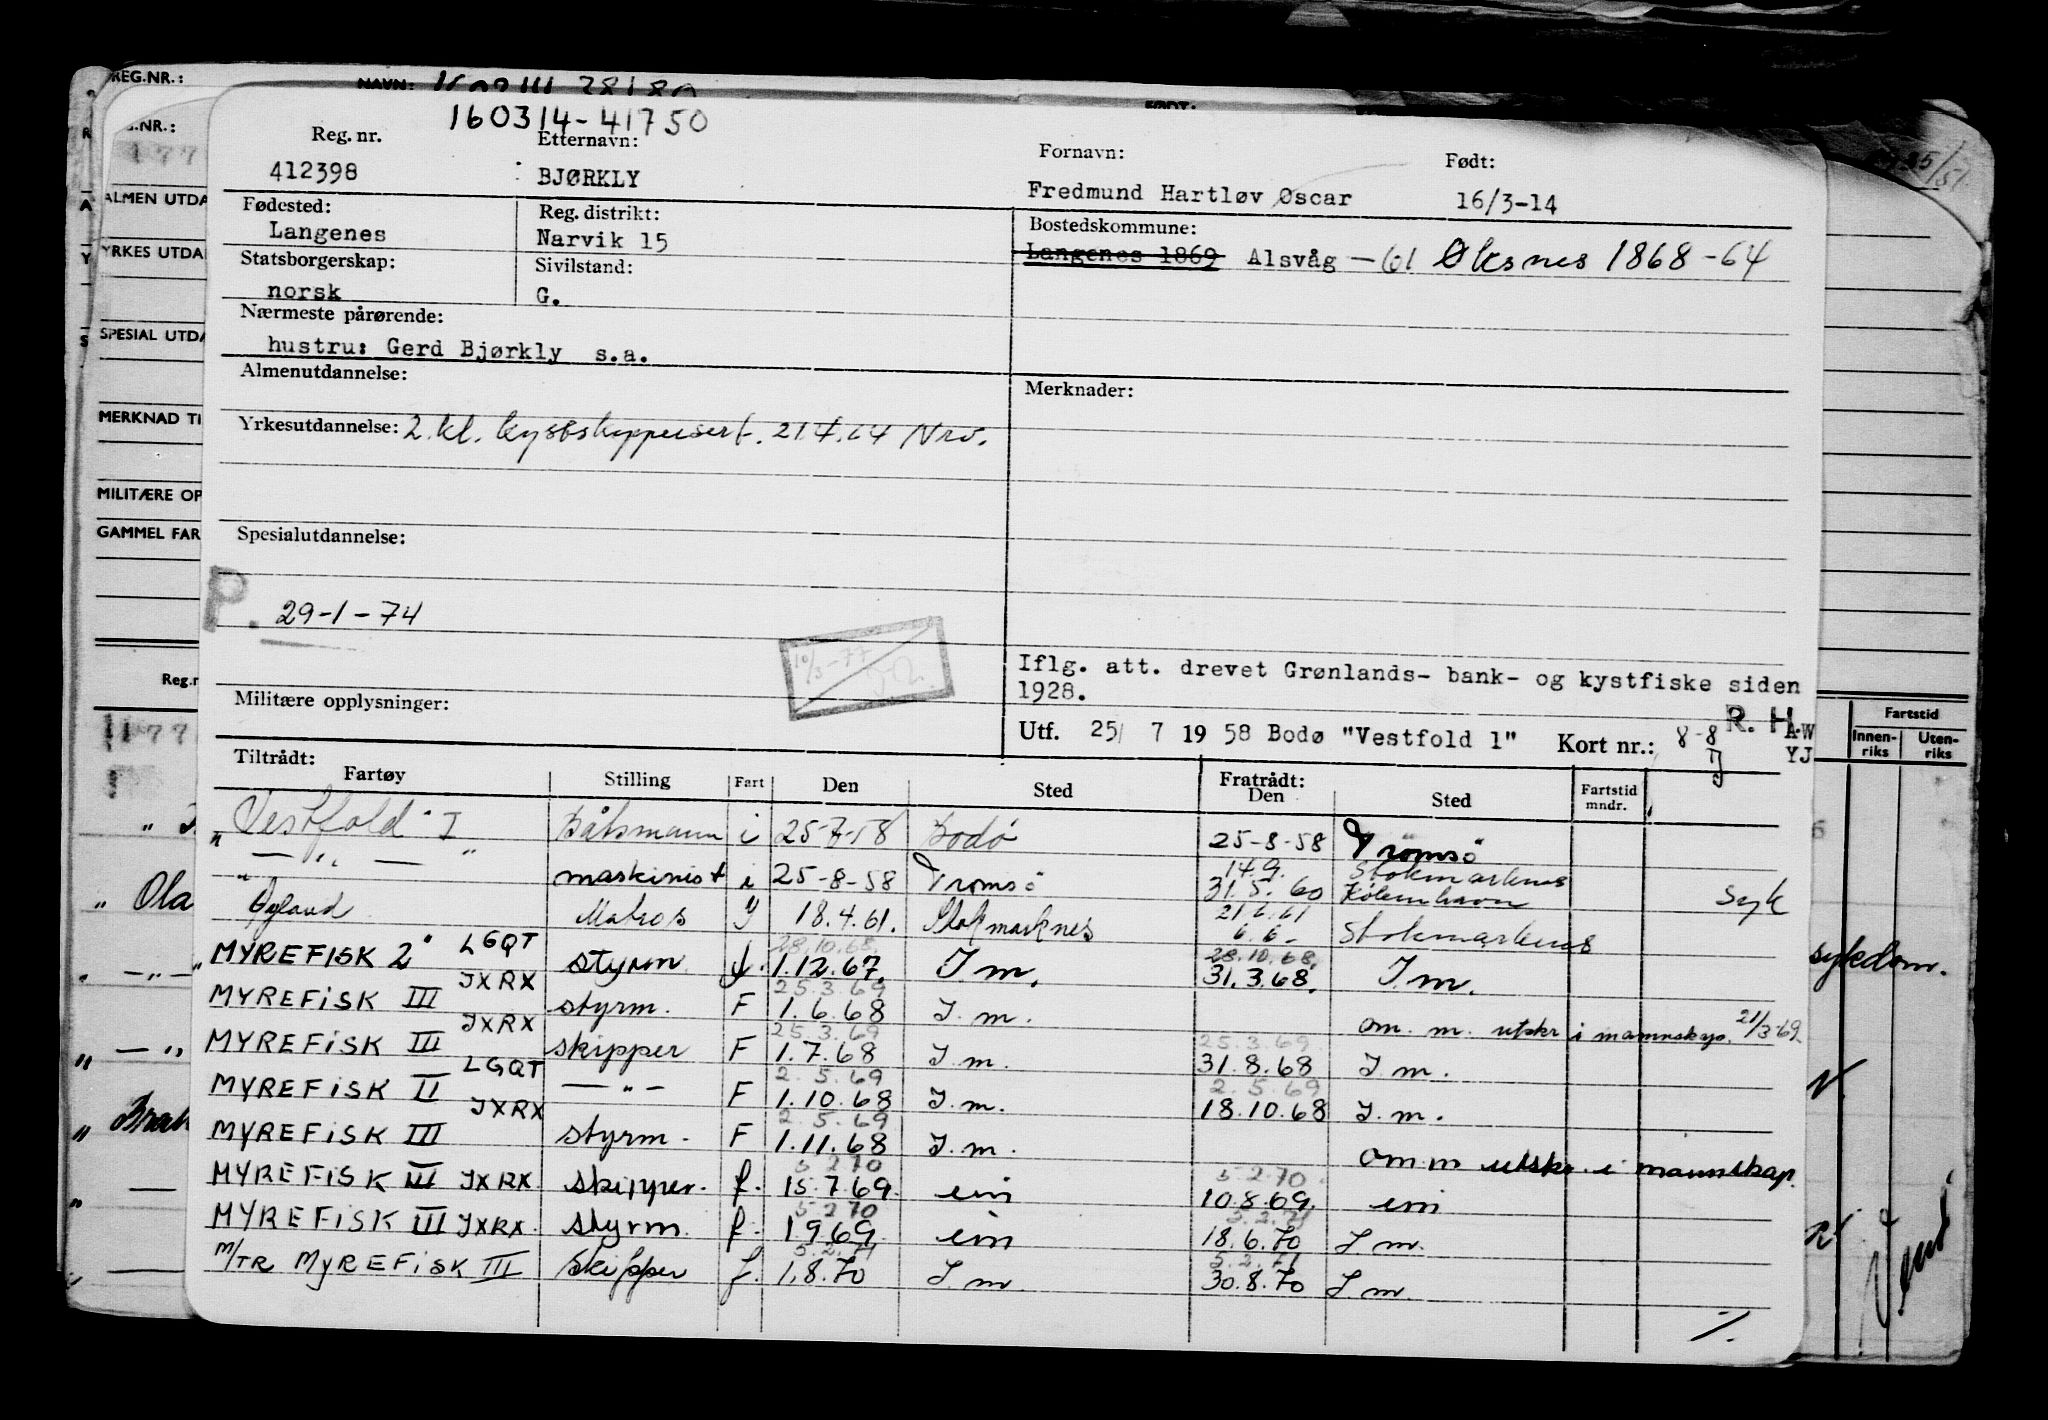 REG.NR.: NAVN: FØDT:
160314-41750
Reg. nr. Etternavn: Fornavn: Født:
412398 BJØRKLY Fredmund Hartløv Oscar 16/3-14
Fødested: Reg. distrikt: Bostedskommune:
Langenes Narvik 15 Langenes 1869 Alsvåg -61 Øksnes 1868-64
Statsborgerskap: Sivilstand:
norsk G.
Nærmeste pårørende:
hustru: Gerd Bjørkly s.a.
Almenutdannelse: Merknader:
Yrkesutdannelse: 2.kl. kystskippersert. 21.4.64 Nrv.
Spesialutdannelse:
P. 29-1-74
10/3-77
Iflg. att. drevet Grønlands- bank- og kystfiske siden
1928.
Militære opplysninger:
Utf. 25/ 7 19 58 Bodø "Vestfold 1" Kort nr.: 8-8 R. H.
Tiltrådt: Fratrådt:
Fartøy Stilling Fart Den Sted Den Sted Fartstid mndr.
"Vestfold" I Båtsmann i 25-7-58 Bodø 25-8-58 Tromsø
— " — " maskinist i 25-8-58 Tromsø 14.9. Stokmarknes
31.5.60 København syk
Matros 18.4.61. Stokmarknes 21.6.61
6.6.- Stokmarknes
28.10.68 28.10.68
MYREFISK 2" LGQT styrm f. 1.12.67. I m. 31.3.68. I m.
25.3.69
MYREFISK III JXRX styrm. F 1.6.68 I. m. om. m. utskr i mannskap. 21/3-69
25.3.69 25.3.69
MYREFISK III JXRX skipper F 1.7.68 I. m. 31.8.68 I. m.
2.5.69 2.5.69
MYREFISK II LGQT — " — F 1.10.68 I. m. 18.10.68 I. m.
2.5.69
MYREFISK III JXRX styrm. F 1.11.68 I. m. om m utskr. i mannskap.
5 2 70 5 2.70
MYREFISK III JXRX skipper. f. 15.7.69. im 10.8.69. im
5 2 70 5.2.71
MYREFISK III JXRX. styrm. f. 1969. im 18.6.70 I m.
5.2.71 5.2.71
M/TR MYREFISK III Skipper f. 1.8.70 I. m. 30.8.70 I m.
%.
ALMEN UTDA
YRKES UTDA
SPESIAL UTDA
MERKNAD TI
MILITÆRE OP
GAMMEL FAR
Fartstid
Innen-riks Uten-riks
sykdom.